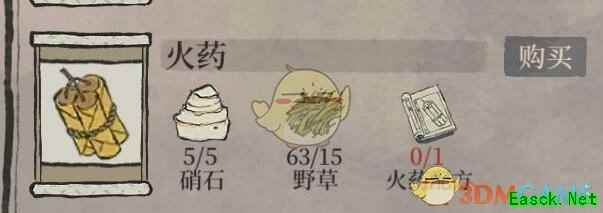 火药
购买
5/5
63/15
0/1
硝石
野草
火药
方
3DMGAME
Easck.Net